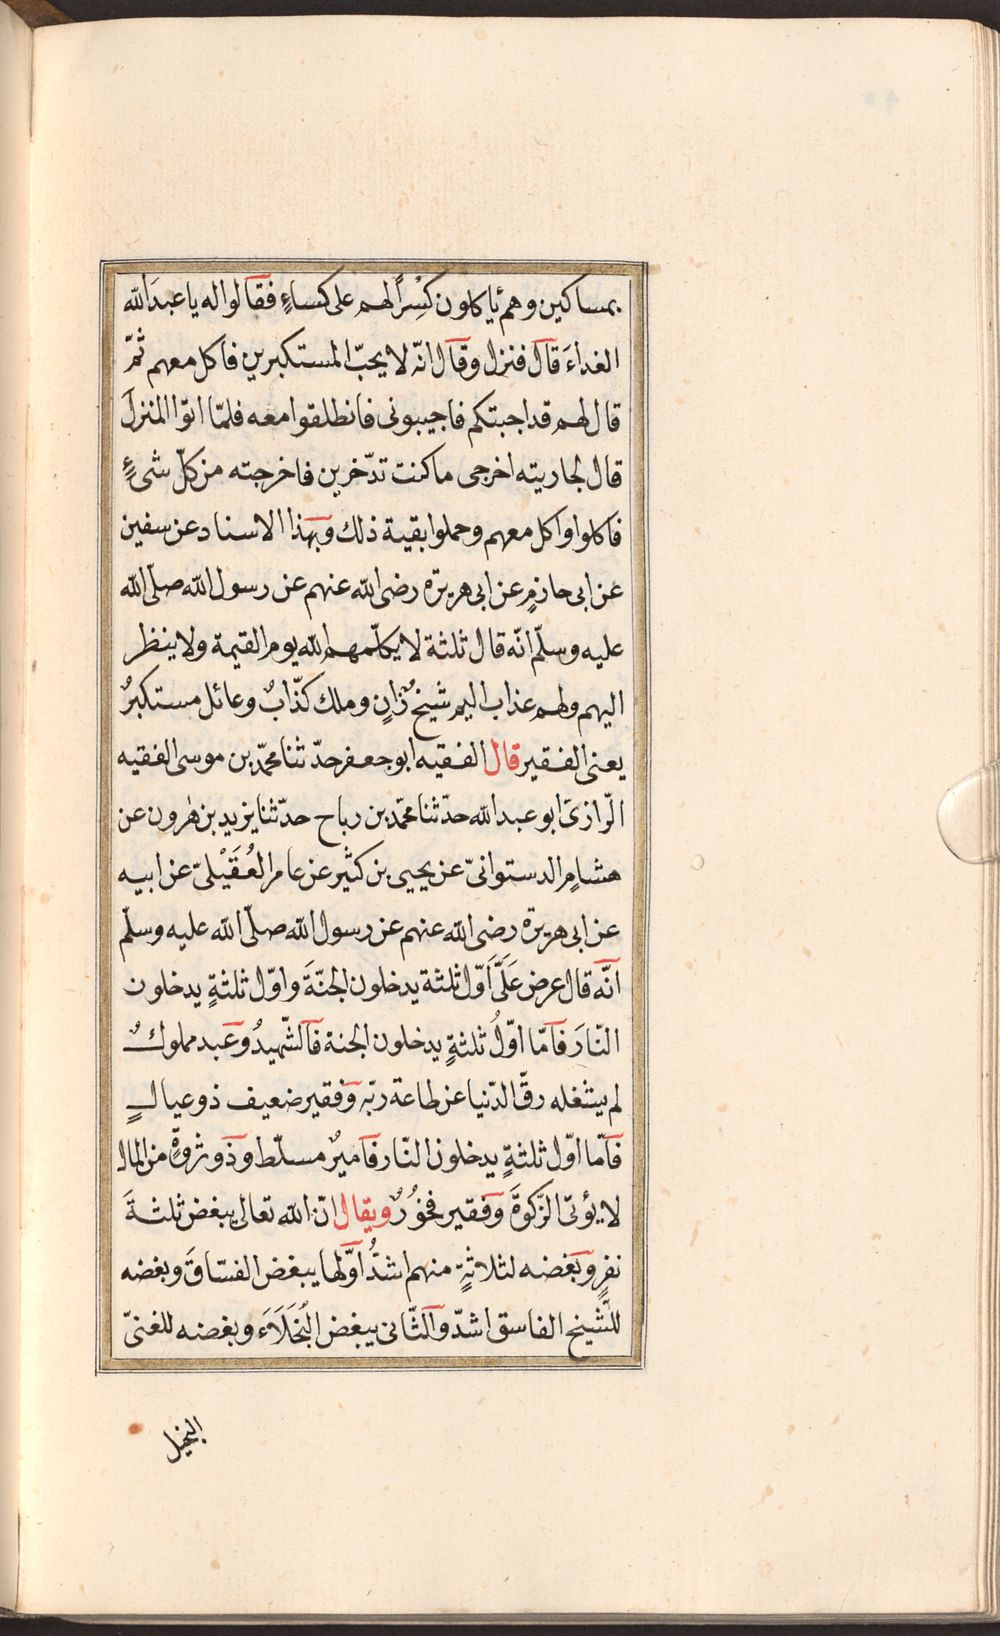 بمساكين وهم يأكلون كِسَراً لهم على كساءٍ فقالوا له يا عبدَالله
الغداءَ قال فنزل وقال انّه لا يحبّ المستكبرين فاكل معهم ثمّ
قال لهم قد اجبتكم فاجيبونى فانطلقوا معه فلمّا اتوا المنزلَ
قال لجاريته اخرجى ما كنت تدّخرين فاخرجته من كلّ شىءٍ
فاكلوا واكل معهم وحملوا بقية ذلك وبهذا الاسناد عن سفين
عن ابى حازمٍ عن ابى هريرة رضى الله عنهم عن رسول الله صلّى الله
عليه وسلّم انّه قال ثلثة لا يكلّمهم الله يوم القيمة ولا ينظر
اليهم ولهم عذاب اليم شيخٌ زانٍ وملك كذّابٌ وعائل مستكبرٌ
يعنى الفقير قال الفقيه ابو جعفر حدّثنا محمّد بن موسى الفقيه
الرّازىّ ابو عبدالله حدّثنا محمّد بن رباح حدّثنا يزيد بن هٰرون عن
هشامٍ الدستوانىّ عن يحيى بن كثير عن عامر العُقَيْلىّ عن ابيه
عن ابى هريرة رضى الله عنهم عن رسول الله صلّى الله عليه وسلّم
انّه قال عرض عَلَىَّ اَوّل ثلثة يدخلون الجنّةَ واوّل ثلثةٍ يدخلون
النّارَ فامّا اوّلُ ثلثةٍ يدخلون الجنة فالشّهيدُ وعبد مملوكٌ
لم يشغله رقّ الدّنيا عن طاعة ربّه وفقير ضعيف ذو عيالٍ
فامّا اوّل ثلثةٍ يدخلون النّار فاميرٌ مسلّط وذو ثروةٍ من المال
لا يؤتى الزّكوةَ وفقير فخورٌ ويقال انّ الله تعالى يبغض ثلثةَ
نفرٍ وبغضه لثلاثةٍ منهم اشدُّ اوّلها يبغض الفسّاقَ وبغضه
للشّيخ الفاسق اشدّ والثّانى يبغض البُخَلَاءَ وبغضه للغنىّ
البخيل